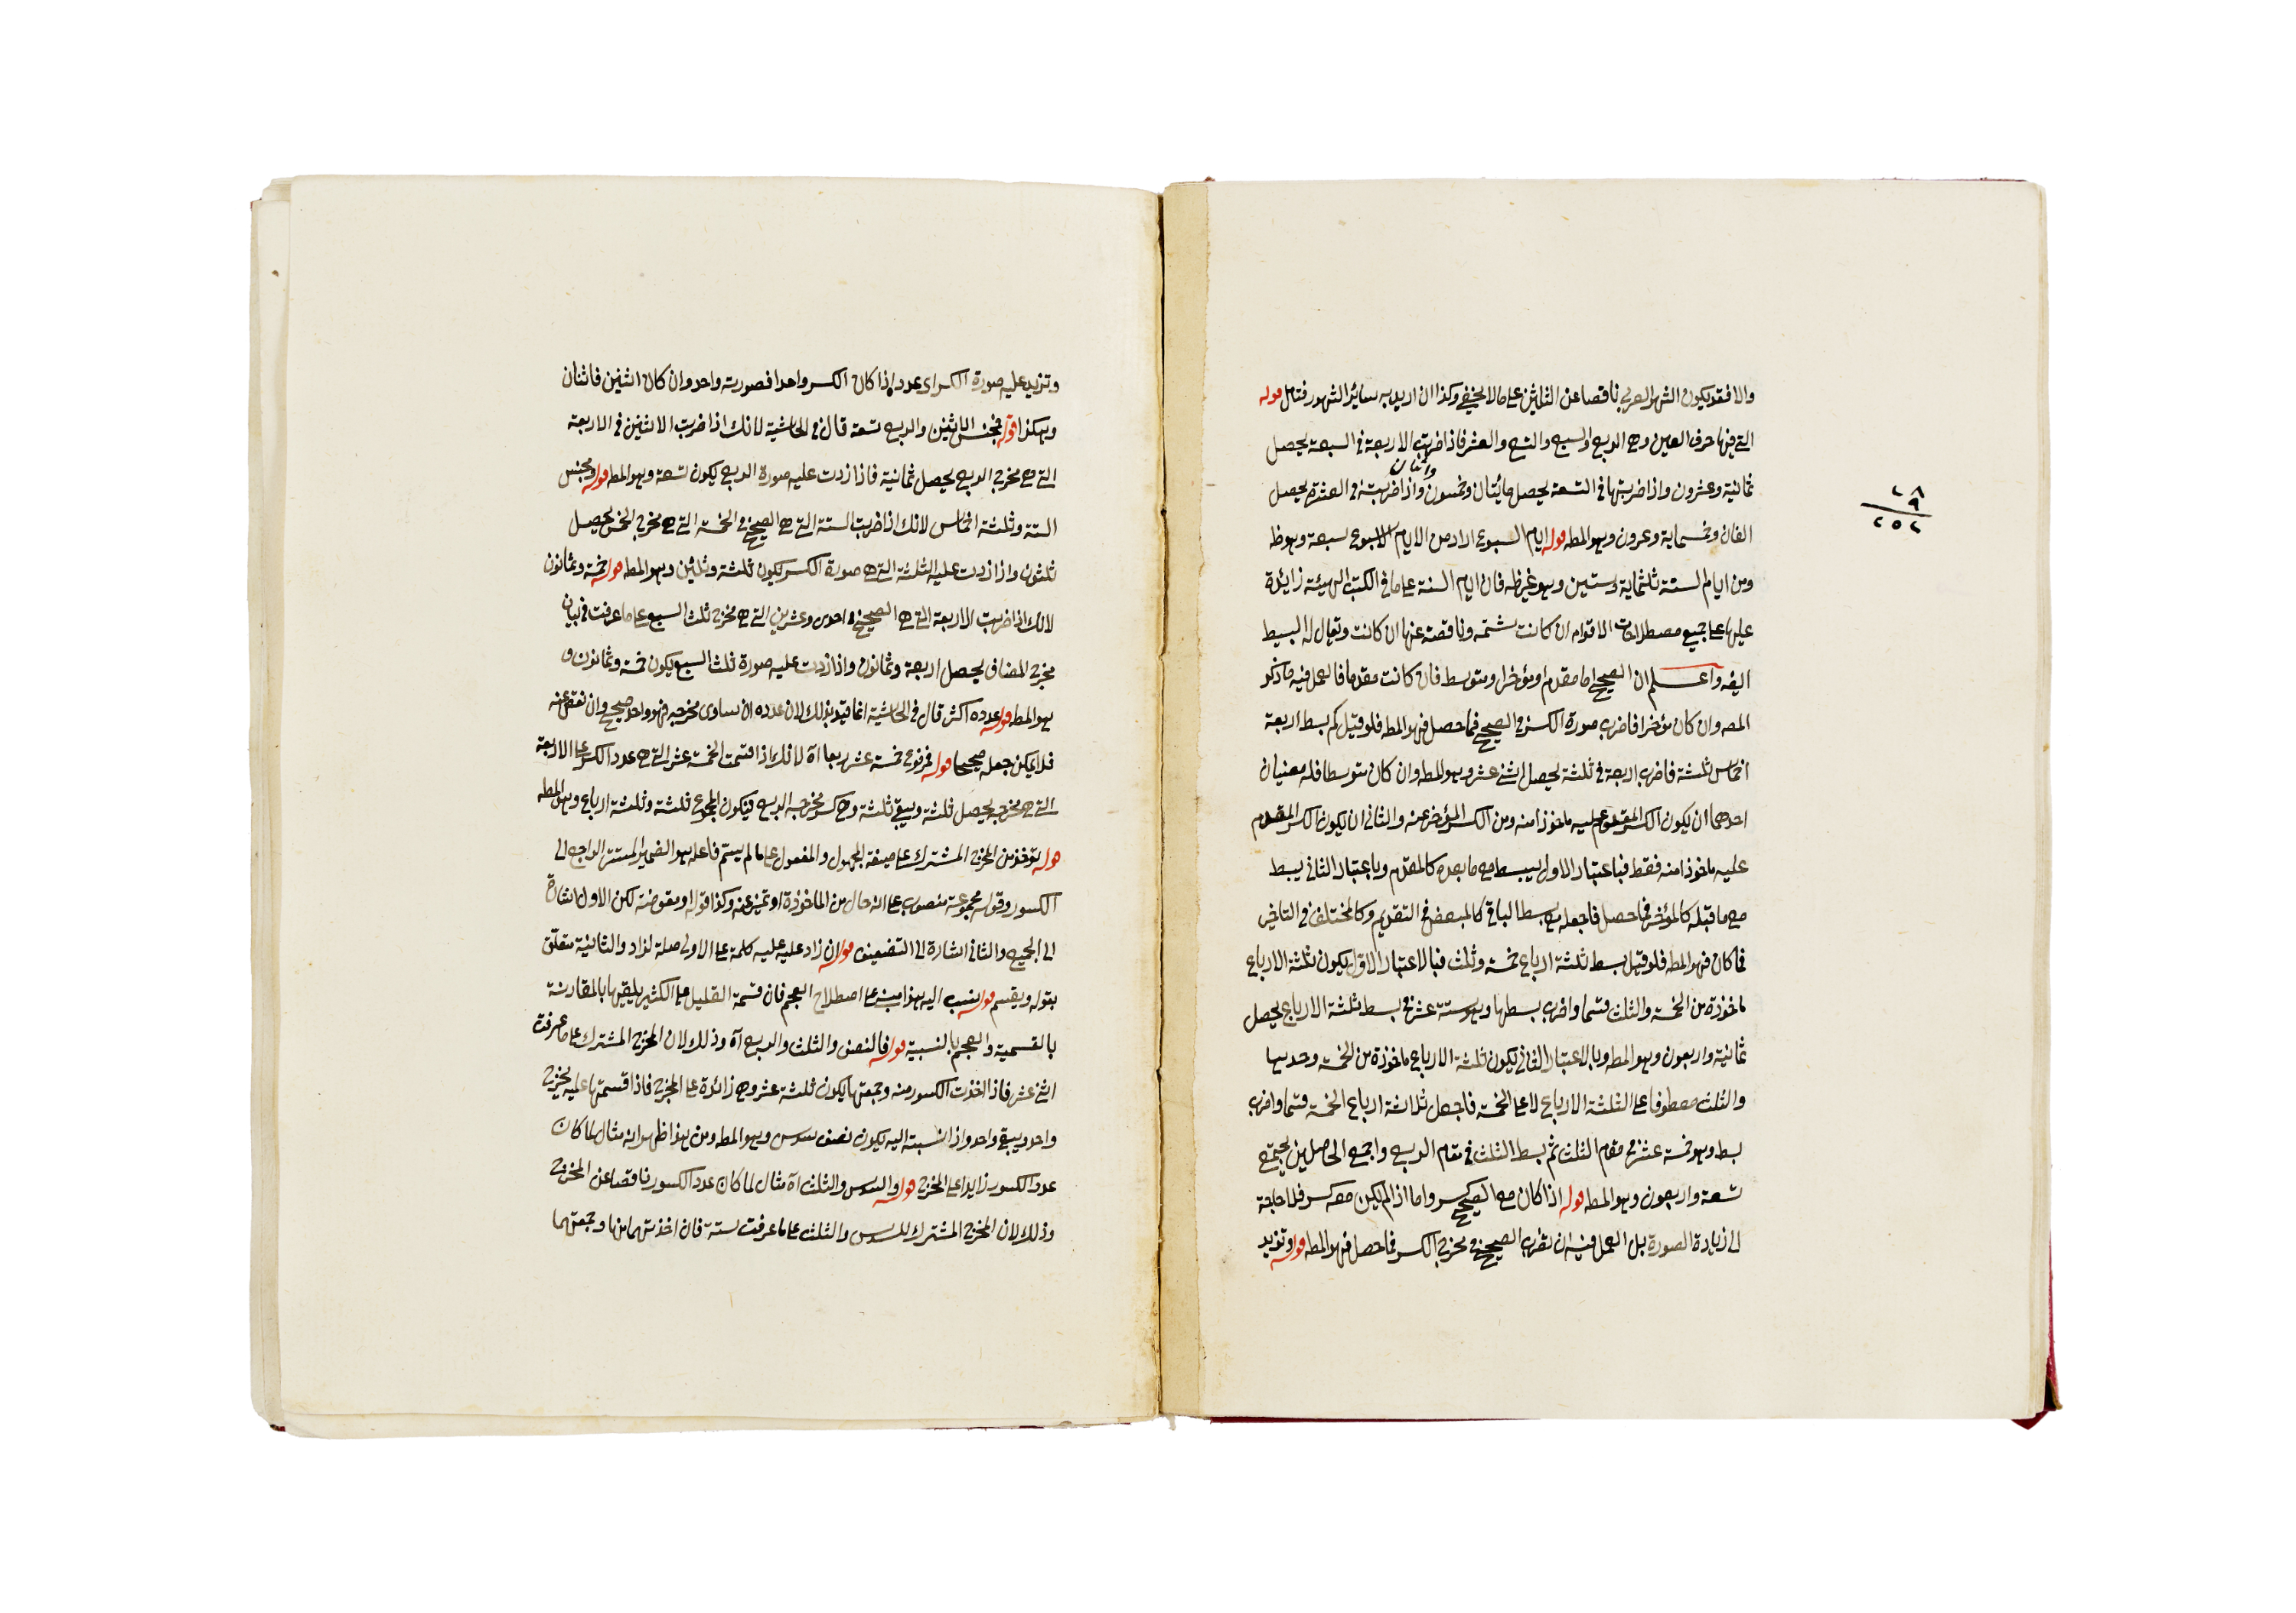 والا فقد يكون الشهر العربي ناقصا عن الثلثين على ما لا يخفى وكذا ان اريد به سائر الشهور فتامل قوله
التي فيها حرف العين وهي الربع والسبع والتسع والعشر فاذا ضربت الاربعة في السبعة يحصل
ثمانية وعشرون واذا ضربتها في التسعة يحصل مائتان وخمسون واثنان واذا ضربته في العشرة يحصل
الفان وخمسماية وعشرون وهو المط قوله ايام السبوع اراد من الايام الاسبوع سبعة وهو ظ
ومن ايام السنة ثلثماية وستين وهو غير ظ فان ايام السنة على ما في الكتب الهيئة زائدة
عليها على جميع مصطلحات الاقوام ان كانت شمسية وناقصة عنها ان كانت ويقال له البسيط
ايضه واعلم ان الصحيح اما مقدم او مؤخر او متوسط فان كانت مقدما فالعمل فيه ما ذكر
المصه وان كان مؤخرا فاضرب صورة الكسر في الصحيح فما حصل فهو المط فلو قيل كم بسط اربعة
اخماس ثلثة فاضرب اربعة في ثلثة يحصل اثنى عشر وهو المط وان كان متوسطا فله معنيان
احدهما ان يكون الكسر المقدم عليه ماخوذا منه ومن الكسر المؤخر عنه والثاني ان يكون الكسر المقدم
عليه ماخوذا منه فقط فباعتبار الاول يبسط مع ما بعده كالمقدم وباعتبار الثاني يبسط
مع ما قبله كالمؤخر فما حصل فاجعله مع بسط الباقي كالمبعض في التقديم وكالمختلف في التاخير
فما كان فهو المط فلو قيل بسط ثلثة ارباع خمسة وثلث فبالاعتبار الاول يكون ثلثة الارباع
ماخوذة من الخمسة والثلث قسما واضرب بسطها وهو ستة عشر في بسط ثلثة الارباع يحصل
ثمانية واربعون وهو المط وبالاعتبار الثاني يكون ثلثة الارباع ماخوذة من الخمسة وحدها
والثلث معطوفا على الثلثة الارباع لا على الخمسة فاجعل ثلاثة ارباع الخمسة قسما واضرب
بسط وهو خمسة عشر في مقام الثلث ثم بسط الثلث في مقام الربع واجمع الحاصلين يجتمع
تسعة واربعون وهو المط قوله اذا كان مع الصحيح كسر واما اذا لم يكن معه كسر فلا حاجة
الى زيادة الصورة بل العمل فيه ان تضرب الصحيح في مخرج الكسر فما حصل فهو المط قوله وتزيد
٢٨
٩
٢٥٢
وتزيد عليه صورة الكسر اى عدده اذا كان الكسر واحدا فصورته واحد وان كان اثنين فاثنان
وهكذا قوله فمجنس الاثنين والربع تسعة قال في الحاشية لانك اذا ضربت الاثنين في الاربعة
التي هي مخرج الربع يحصل ثمانية فاذا زدت عليه صورة الربع يكون تسعة وهو المط قوله ومجنس
الستة وثلثة اخماس لانك اذا ضربت الستة التي هي الصحيح في الخمسة التي هي مخرج الخمس يحصل
ثلثون واذا زدت عليه الثلثة التي هي صورة الكسر يكون ثلثة وثلثين وهو المط قوله خمسة وثمانون
لانك اذا ضربت الاربعة التي هي الصحيح في احدى وعشرين التي هي مخرج ثلث السبع على ما عرفت في بيان
مخرج المضاف يحصل اربعة وثمانون واذا زدت عليه صورة ثلث السبع يكون خمسة وثمانون و
هو المط قوله عدده اكثر قال في الحاشية انما قيد بذلك لان عدده ان ساوى مخرجه فهو واحد صحيح وان نقص عنه
فلا يمكن جعله صحيحا قوله فمرفوع خمسة عشر ربعا اه لانك اذا قسمت الخمسة عشر التي هي عدد الكسر على الاربعة
التي هي مخرجه يحصل ثلثة ويبقى ثلثة وهي كسر مخرجه الربع فيكون المجموع ثلثة وثلثة ارباع وهو المط
قوله تؤخذ من المخرج المشترك على صيغة المجهول والمفعول على ما لم يسم فاعله هو الضمير المستتر الراجع الى
الكسور وقوله مجموعة منصوب على انه حال من الماخوذة او تميز عنه وكذا قوله او مضعفه لكن الاول اشارة
الى الجمع والثاني اشارة الى التضعيف قوله ان زاد عليه عليه كلمة على الاولى صلة لزاد والثانية متعلق
بقوله ويقسم قوله نسب اليه هذا مبني على اصطلاح العجم فان قسمة القليل على الكثير يلقبها بالمقاربة
بالقسمية والعجم بالنسبية قوله فالنصف والثلث والربع اه وذلك لان المخرج المشترك على ما عرفت
اثنى عشر فاذا اخذت الكسور منه وجمعتها يكون ثلثة عشر وهي زائدة على المخرج فاذا قسمتها عليه يخرج
واحد ويبقى واحد واذا نسبته اليه يكون نصف سدس وهو المط ومن هذا ظهر انه مثال لما كان
عدد الكسور زايدا على المخرج قوله والسدس والثلث اه مثال لما كان عدد الكسور ناقصا عن المخرج
وذلك لان المخرج المشترك للسدس والثلث على ما عرفت ستة فان اخذتهما منها وجمعتهما